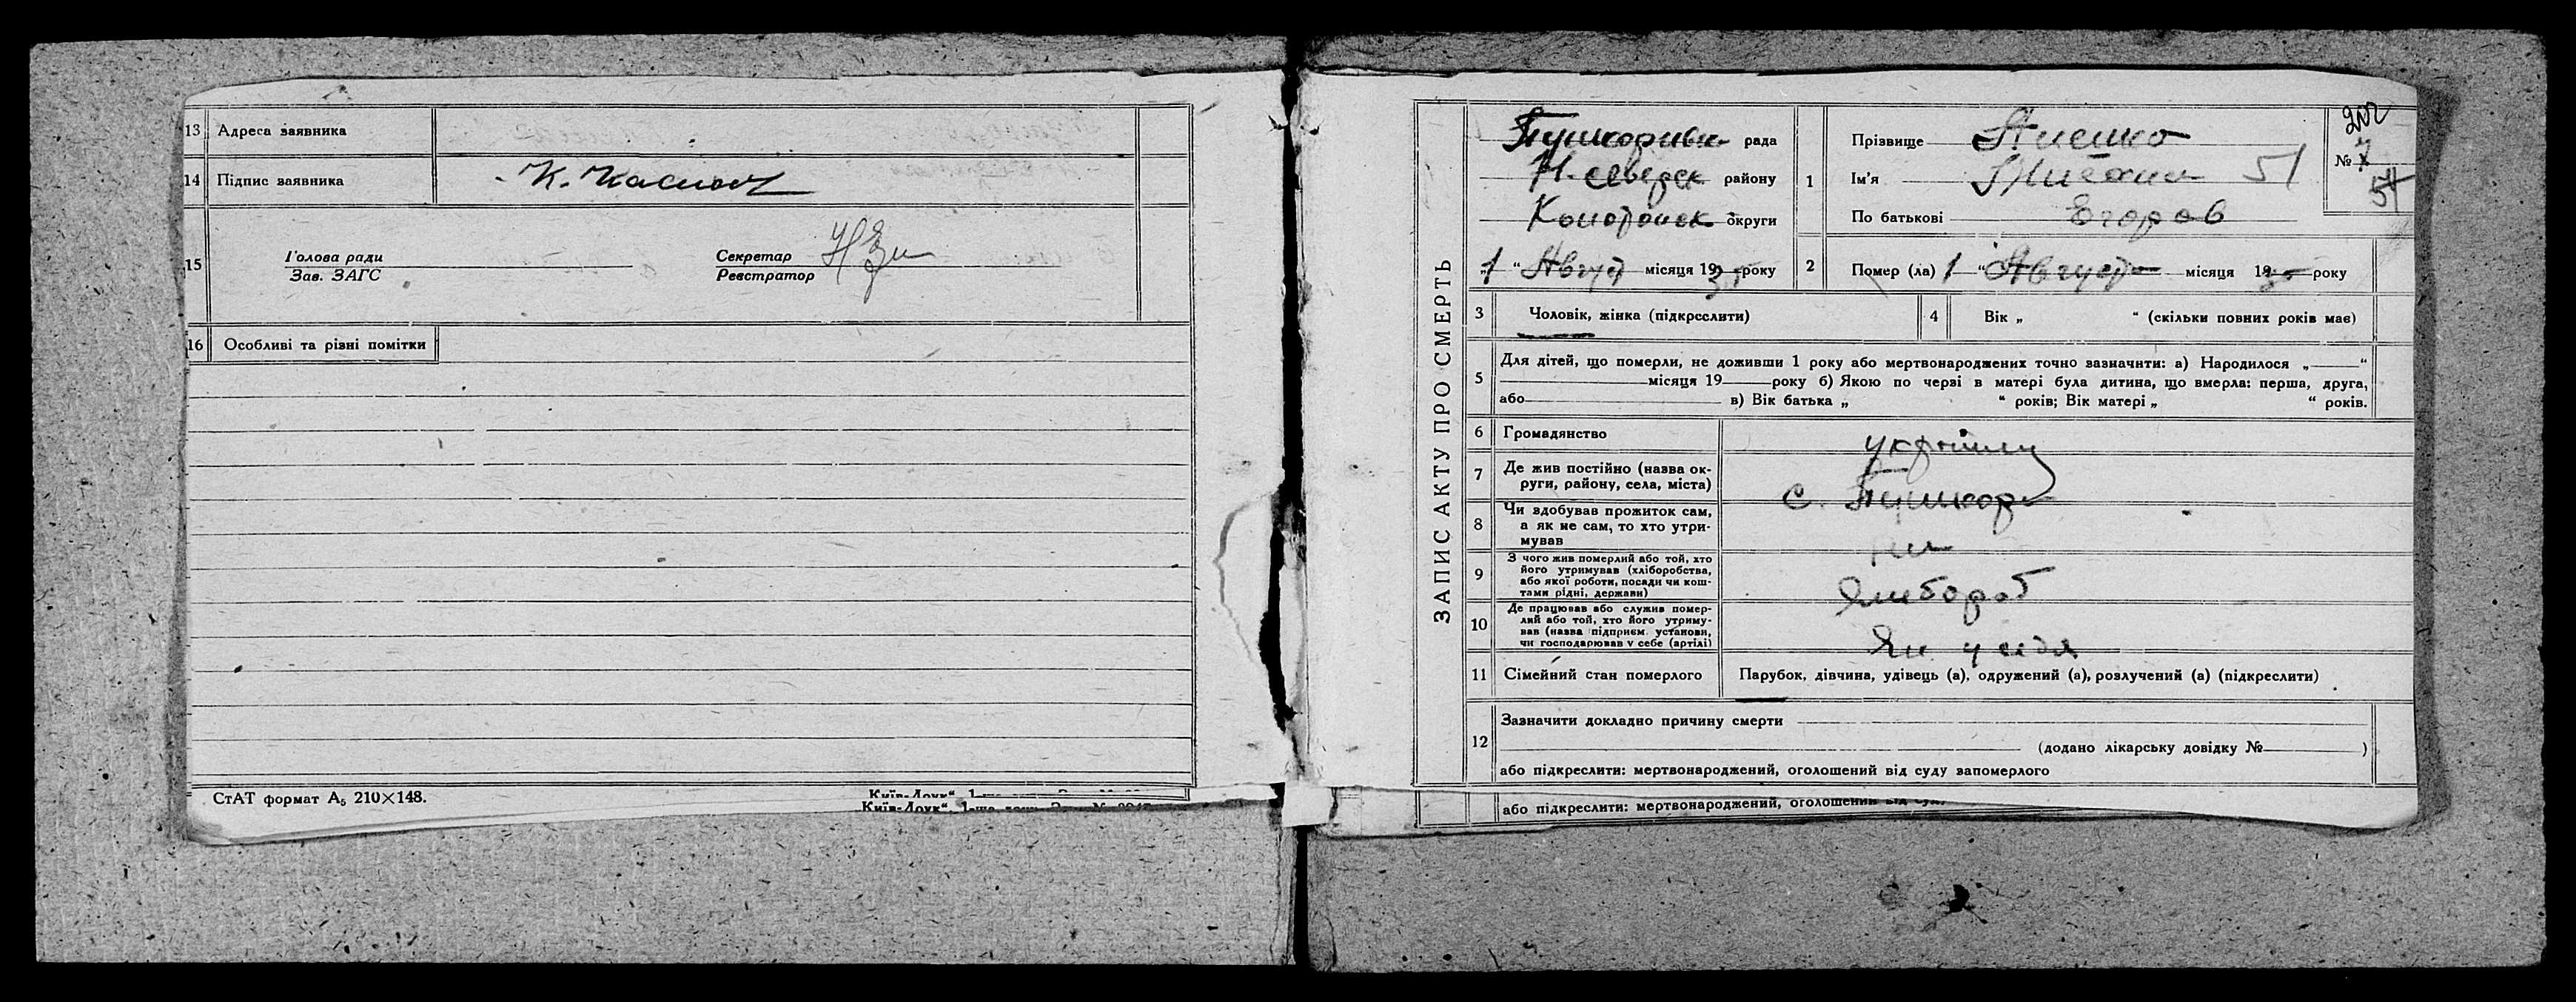 13 Адреса заявника
14 Підпис заявника
15 Голова ради
Зав. ЗАГС
Секретар
Реєстратор
16 Особливі та різні помітки
СтАТ формат А₅ 210×148.
ЗАПИС АКТУ ПРО СМЕРТЬ
Пушкоривск рада
Н. северск району
Конотопск округи
„1 “ Август місяця 19 року
1 Прізвище
Ім'я 51
По батькові Егоров
202
№ 7
51
2 Помер (ла) 1 “ Августа місяця 19 року
3 Чоловік, жінка (підкреслити)
4 Вік „ “ (скільки повних років має)
5 Для дітей, що померли, не доживши 1 року або мертвонароджених точно зазначити: а) Народилося „ “
місяця 19 року б) Якою по черзі в матері була дитина, що вмерла: перша, друга,
або в) Вік батька „ “ років; Вік матері „ “ років.
6 Громадянство
7 Де жив постійно (назва ок-
руги, району, села, міста) с. Пушкор
8 Чи здобував прожиток сам,
а як не сам, то хто утри-
мував
9 З чого жив померлий або той, хто
його утримував (хліборобства,
або якої роботи, посади чи кош-
тами рідні, держави)
10 Де працював або служив помер-
лий або той, хто його утриму-
вав (назва підприєм. установи,
чи господарював у себе (артілі)
11 Сімейний стан померлого Парубок, дівчина, удівець (а), одружений (а), розлучений (а) (підкреслити)
12 Зазначити докладно причину смерти
(додано лікарську довідку № )
або підкреслити: мертвонароджений, оголошений від суду запомерлого
або підкреслити: мертвонароджений, оголошений від